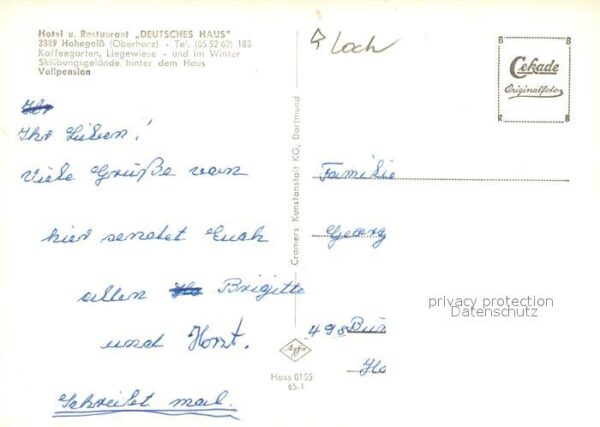 Hotel u. Restaurant „DEUTSCHES HAUS"
3389 Hohegeiß (Oberharz) - Tel. (05 52 63) 183
Kaffeegarten, Liegewiese - und im Winter
Skiübungsgelände hinter dem Haus
Vollpension
Loch
Cekade
Originalfoto
Ihr Lieben!
Viele Grüße von
hier sendet Euch
allen Brigitte
und Horst.
Schreibt mal.
Cramers Kunstanstalt KG, Dortmund
Agfa
Hass 0155
65.1
Familie
Georg
498 Bün
Ho
privacy protection
Datenschutz